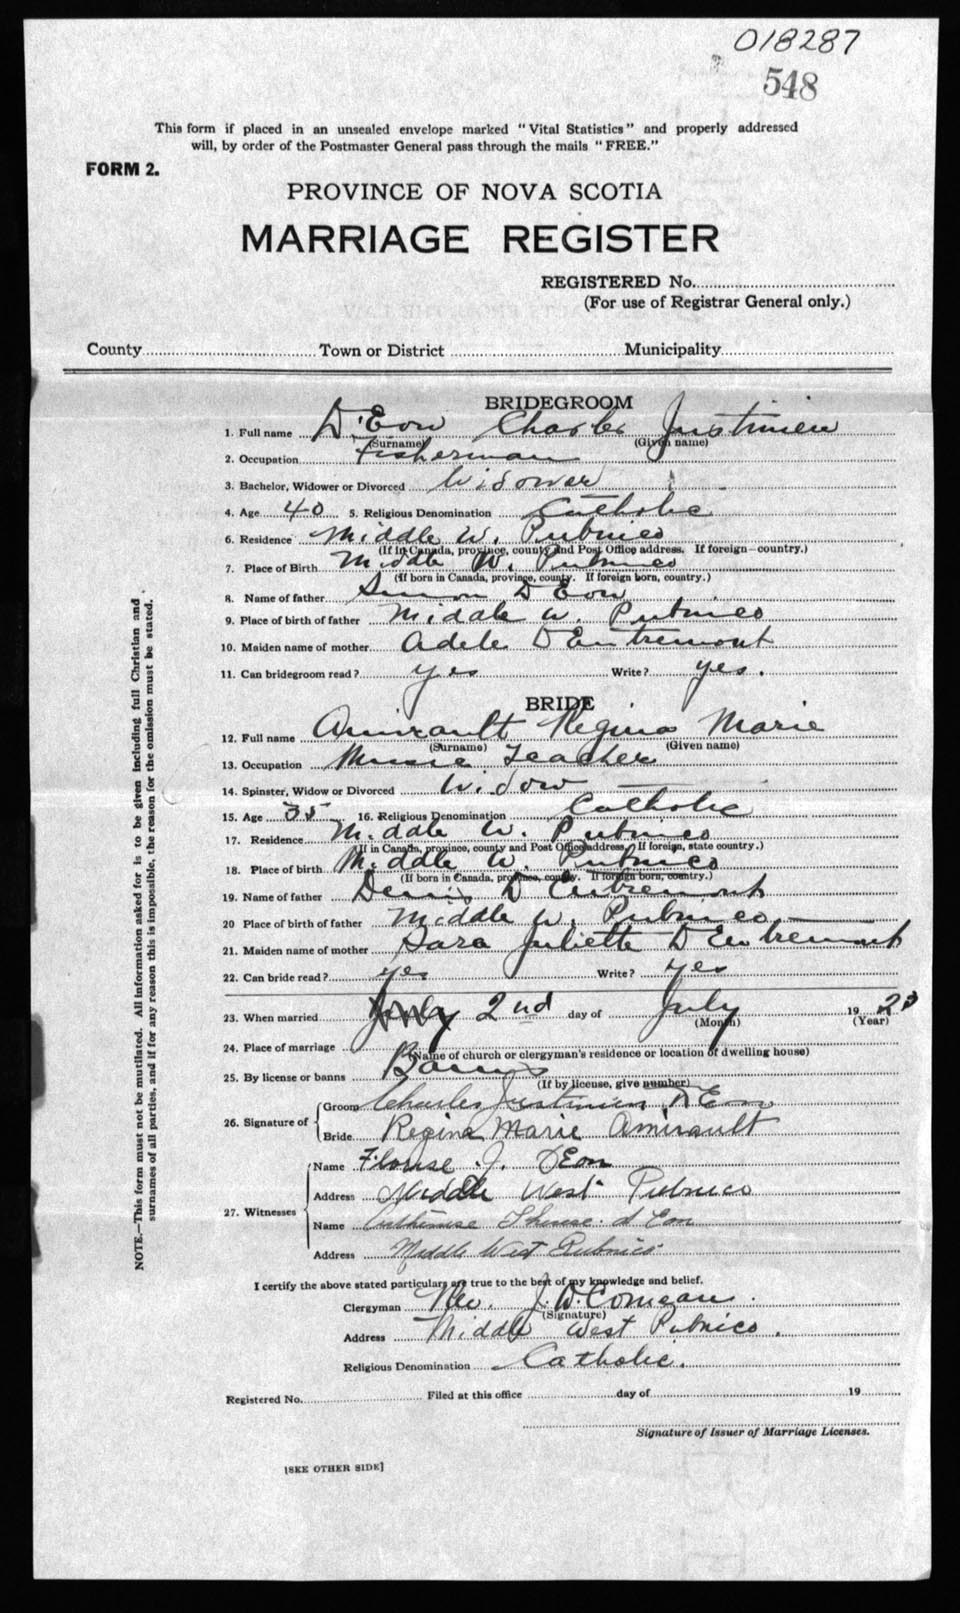 018287
548
This form if placed in an unsealed envelope marked "Vital Statistics" and properly addressed
will, by order of the Postmaster General pass through the mails "FREE."
FORM 2.
PROVINCE OF NOVA SCOTIA
MARRIAGE REGISTER
REGISTERED No.
(For use of Registrar General only.)
County Town or District Municipality
BRIDEGROOM
1. Full name D'Eon Charles Justinien
(Surname) (Given name)
2. Occupation Fisherman
3. Bachelor, Widower or Divorced Widower
4. Age 40 5. Religious Denomination Catholic
6. Residence Middle W. Pubnico
(If in Canada, province, county and Post Office address. If foreign—country.)
7. Place of Birth Middle W. Pubnico
(If born in Canada, province, county. If foreign born, country.)
8. Name of father Simon D'Eon
9. Place of birth of father Middle W. Pubnico
10. Maiden name of mother Adele D'Entremont
11. Can bridegroom read? yes Write? yes.
BRIDE
12. Full name Amirault Regina Marie
(Surname) (Given name)
13. Occupation Music Teacher
14. Spinster, Widow or Divorced Widow
15. Age 35 16. Religious Denomination Catholic
17. Residence Middle W. Pubnico
(If in Canada, province, county and Post Office address, If foreign, state country.)
18. Place of birth Middle W. Pubnico
(If born in Canada, province, county. If foreign born, country.)
19. Name of father Denis D'Entremont
20 Place of birth of father Middle W. Pubnico
21. Maiden name of mother Sara Juliette D'Entremont
22. Can bride read? yes Write? yes
23. When married 2nd day of July 19 23
(Month) (Year)
24. Place of marriage
(Name of church or clergyman's residence or location of dwelling house)
25. By license or banns Banns
(If by license, give number)
26. Signature of
Groom Charles Justinien D'Eon
Bride Regina Marie Amirault
27. Witnesses
Name J. D'Eon
Address Middle West Pubnico
Name d'Eon
Address Middle West Pubnico
I certify the above stated particulars are true to the best of my knowledge and belief.
Clergyman Rev. J. W. Comeau.
(Signature)
Address Middle West Pubnico.
Religious Denomination Catholic.
Registered No. Filed at this office day of 19
Signature of Issuer of Marriage Licenses.
[SEE OTHER SIDE]
NOTE.—This form must not be mutilated. All information asked for is to be given including full Christian and
surnames of all parties, and if for any reason this is impossible, the reason for the omission must be stated.